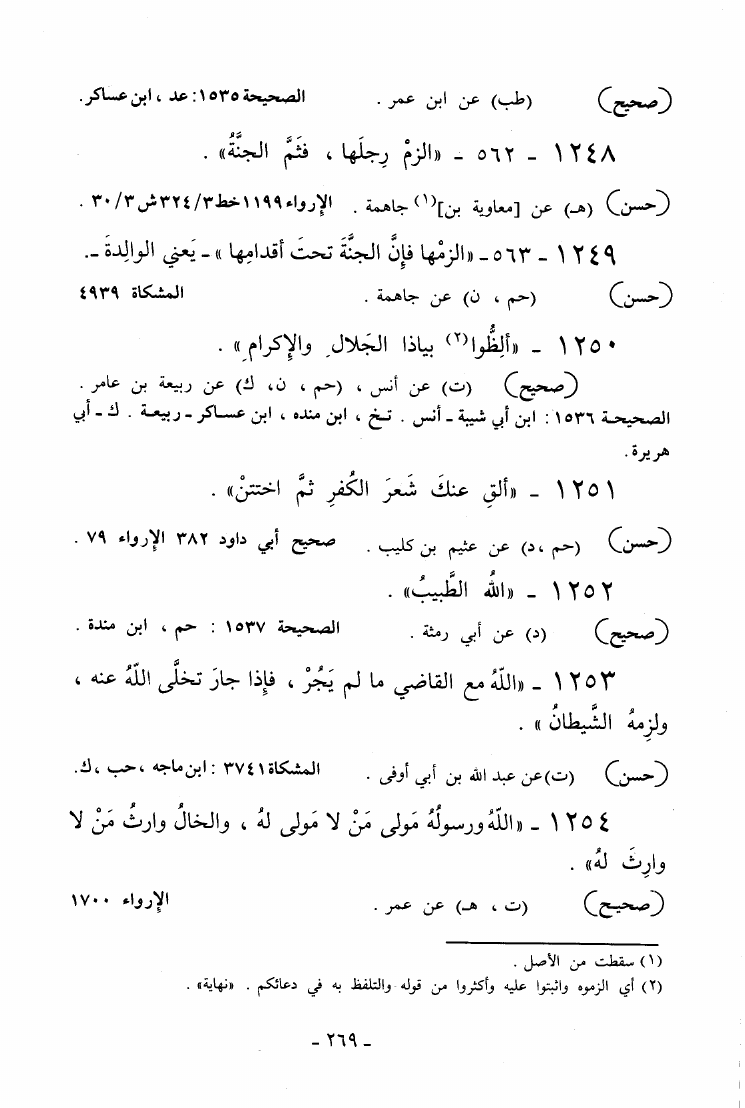 (صحيح) (طب) عن ابن عمر . الصحيحة ١٥٣٥: عد ، ابن عساكر.
١٢٤٨ - ٥٦٢ - «الزمْ رِجلَها ، فثَمَّ الجنَّةُ» .
(حسن) (هـ) عن [معاوية بن](١) جاهمة . الإرواء ١١٩٩ خط ٣٢٤/٣ ش ٣٠/٣ .
١٢٤٩ - ٥٦٣ - «الزمْها فإنَّ الجنَّةَ تحتَ أقدامِها» - يَعني الوالِدةَ -.
(حسن) (حم ، ن) عن جاهمة . المشكاة ٤٩٣٩
١٢٥٠ - «ألِظُّوا(٢) بياذا الجَلالِ والإكرامِ» .
(صحيح) (ت) عن أنس ، (حم ، ن، ك) عن ربيعة بن عامر .
الصحيحة ١٥٣٦ : ابن أبي شيبة - أنس . تخ ، ابن منده ، ابن عساكر - ربيعة . ك - أبي
هريرة .
١٢٥١ - «ألقِ عنكَ شَعرَ الكُفرِ ثمَّ اختتنْ» .
(حسن) (حم ،د) عن عثيم بن كليب . صحيح أبي داود ٣٨٢ الإرواء ٧٩ .
١٢٥٢ - «اللهُ الطَّبيبُ» .
(صحيح) (د) عن أبي رمثة . الصحيحة ١٥٣٧ : حم ، ابن مندة .
١٢٥٣ - «اللّهُ مع القاضي ما لم يَجُرْ ، فإذا جارَ تخلَّى اللّهُ عنه ،
ولزِمهُ الشَّيطانُ» .
(حسن) (ت) عن عبد الله بن أبي أوفى . المشكاة ٣٧٤١ : ابن ماجه ، حب ، ك.
١٢٥٤ - «اللّهُ ورسولُهُ مَولى مَنْ لا مَولى لهُ ، والخالُ وارثُ مَنْ لا
وارِثَ لهُ» .
(صحيح) (ت ، هـ) عن عمر . الإرواء ١٧٠٠
(١) سقطت من الأصل .
(٢) أي الزموه واثبتوا عليه وأكثروا من قوله والتلفظ به في دعائكم . «نهاية» .
- ٢٦٩ -